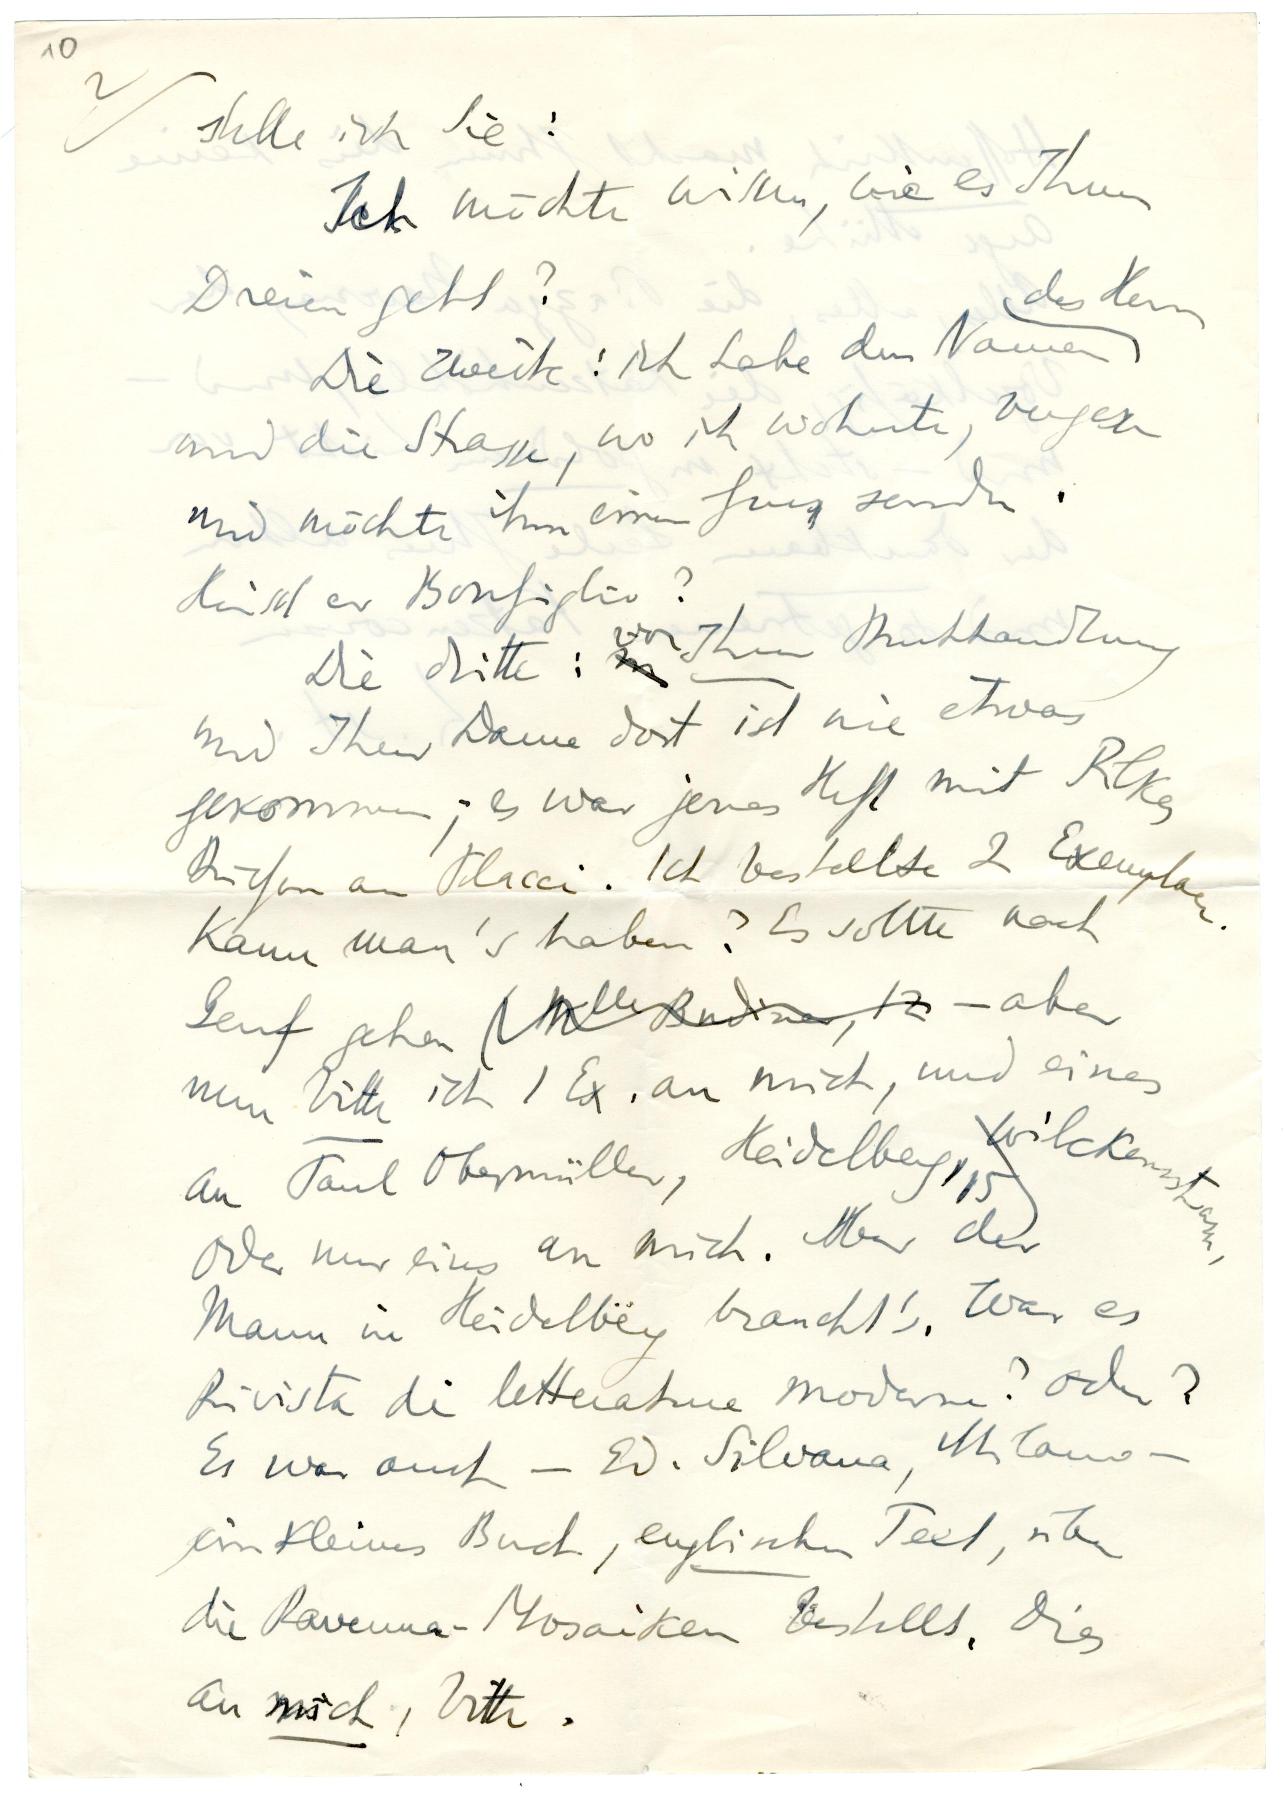 10
2/
stelle ich Sie:
Ich möchte wissen, wie es Ihnen
Dreien geht?
des Herrn
Die zweite: ich habe den Namen
und die Strasse, wo ich wohnte, vergessen
und möchte ihm einen Gruss senden.
Heisst er Bonfiglio?
Die dritte: in vor Ihrer Buchhandlung
und Ihrer Dame dort ist nie etwas
gekommen; es war jenes Heft mit Rilkes
Briefen an Placci. Ich bestellte 2 Exemplare.
Kann man's haben? Es sollte nach
Genf gehen (Mlle Budiner, 12 — aber
nun bitte ich 1 Ex. an mich, und eines
an Paul Obermüller, Heidelberg, Wilckensstrasse, 15
oder nur eins an mich. Aber der
Mann in Heidelberg braucht's. War es
Rivista di letterature moderne? Oder?
Es war auch — Ed. Silvana, Milano —
ein kleines Buch, englischen Text, über
die Ravenna-Mosaiken bestellt. Dies
an mich, bitte.